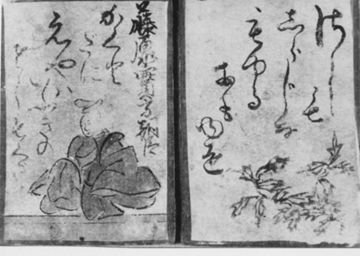 藤原實方朝臣
かくと
たに
えやはいふきの
さしもくさ
さしも
しらしな
もゆる
おも
ひを